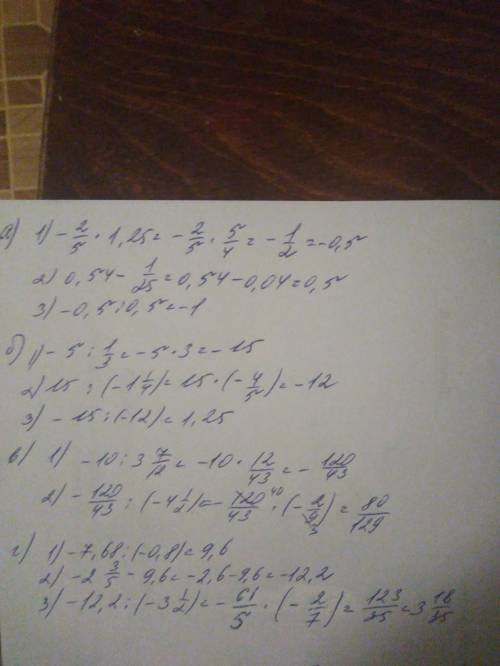 а) 1) -2/5 · 1,25 = -2/5 · 5/4 = -1/2 = -0,5
2) 0,54 - 1/25 = 0,54 - 0,04 = 0,5
3) -0,5 : 0,5 = -1
б) 1) -5 : 1/3 = -5 · 3 = -15
2) 15 : (-1 1/4) = 15 · (-4/5) = -12
3) -15 : (-12) = 1,25
в) 1) -10 : 3 7/12 = -10 · 12/43 = -120/43
2) -120/43 : (-4 1/2) = -120/43 40 · (-2/9 3) = 80/129
г) 1) -7,68 : (-0,8) = 9,6
2) -2 3/5 - 9,6 = -2,6 - 9,6 = -12,2
3) -12,2 : (-3 1/2) = -61/5 · (-2/7) = 123/35 = 3 18/35